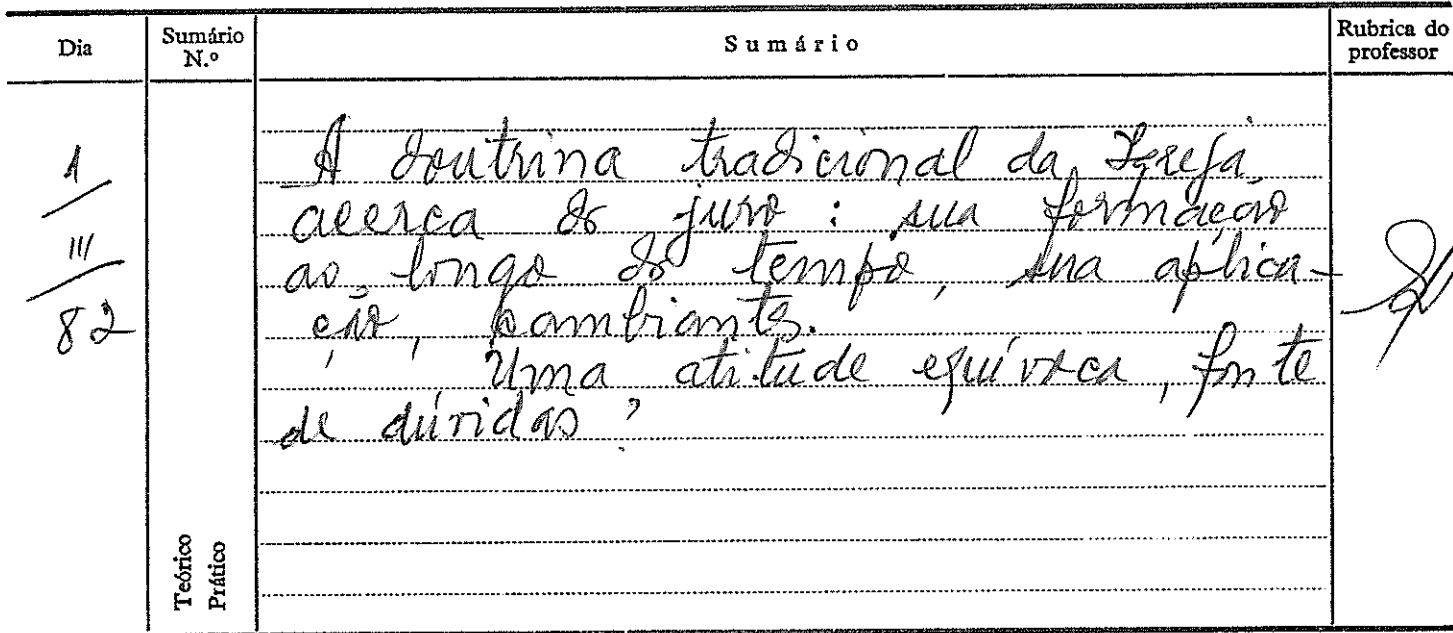 Dia
Sumário N.º
Sumário
Rubrica do professor
1
III
82
A doutrina tradicional da Igreja
acerca do juro: sua formação
ao longo do tempo, sua aplica-
ção, cambiantes.
Uma atitude equívoca, fonte
de dúvidas?
Teórico
Prático